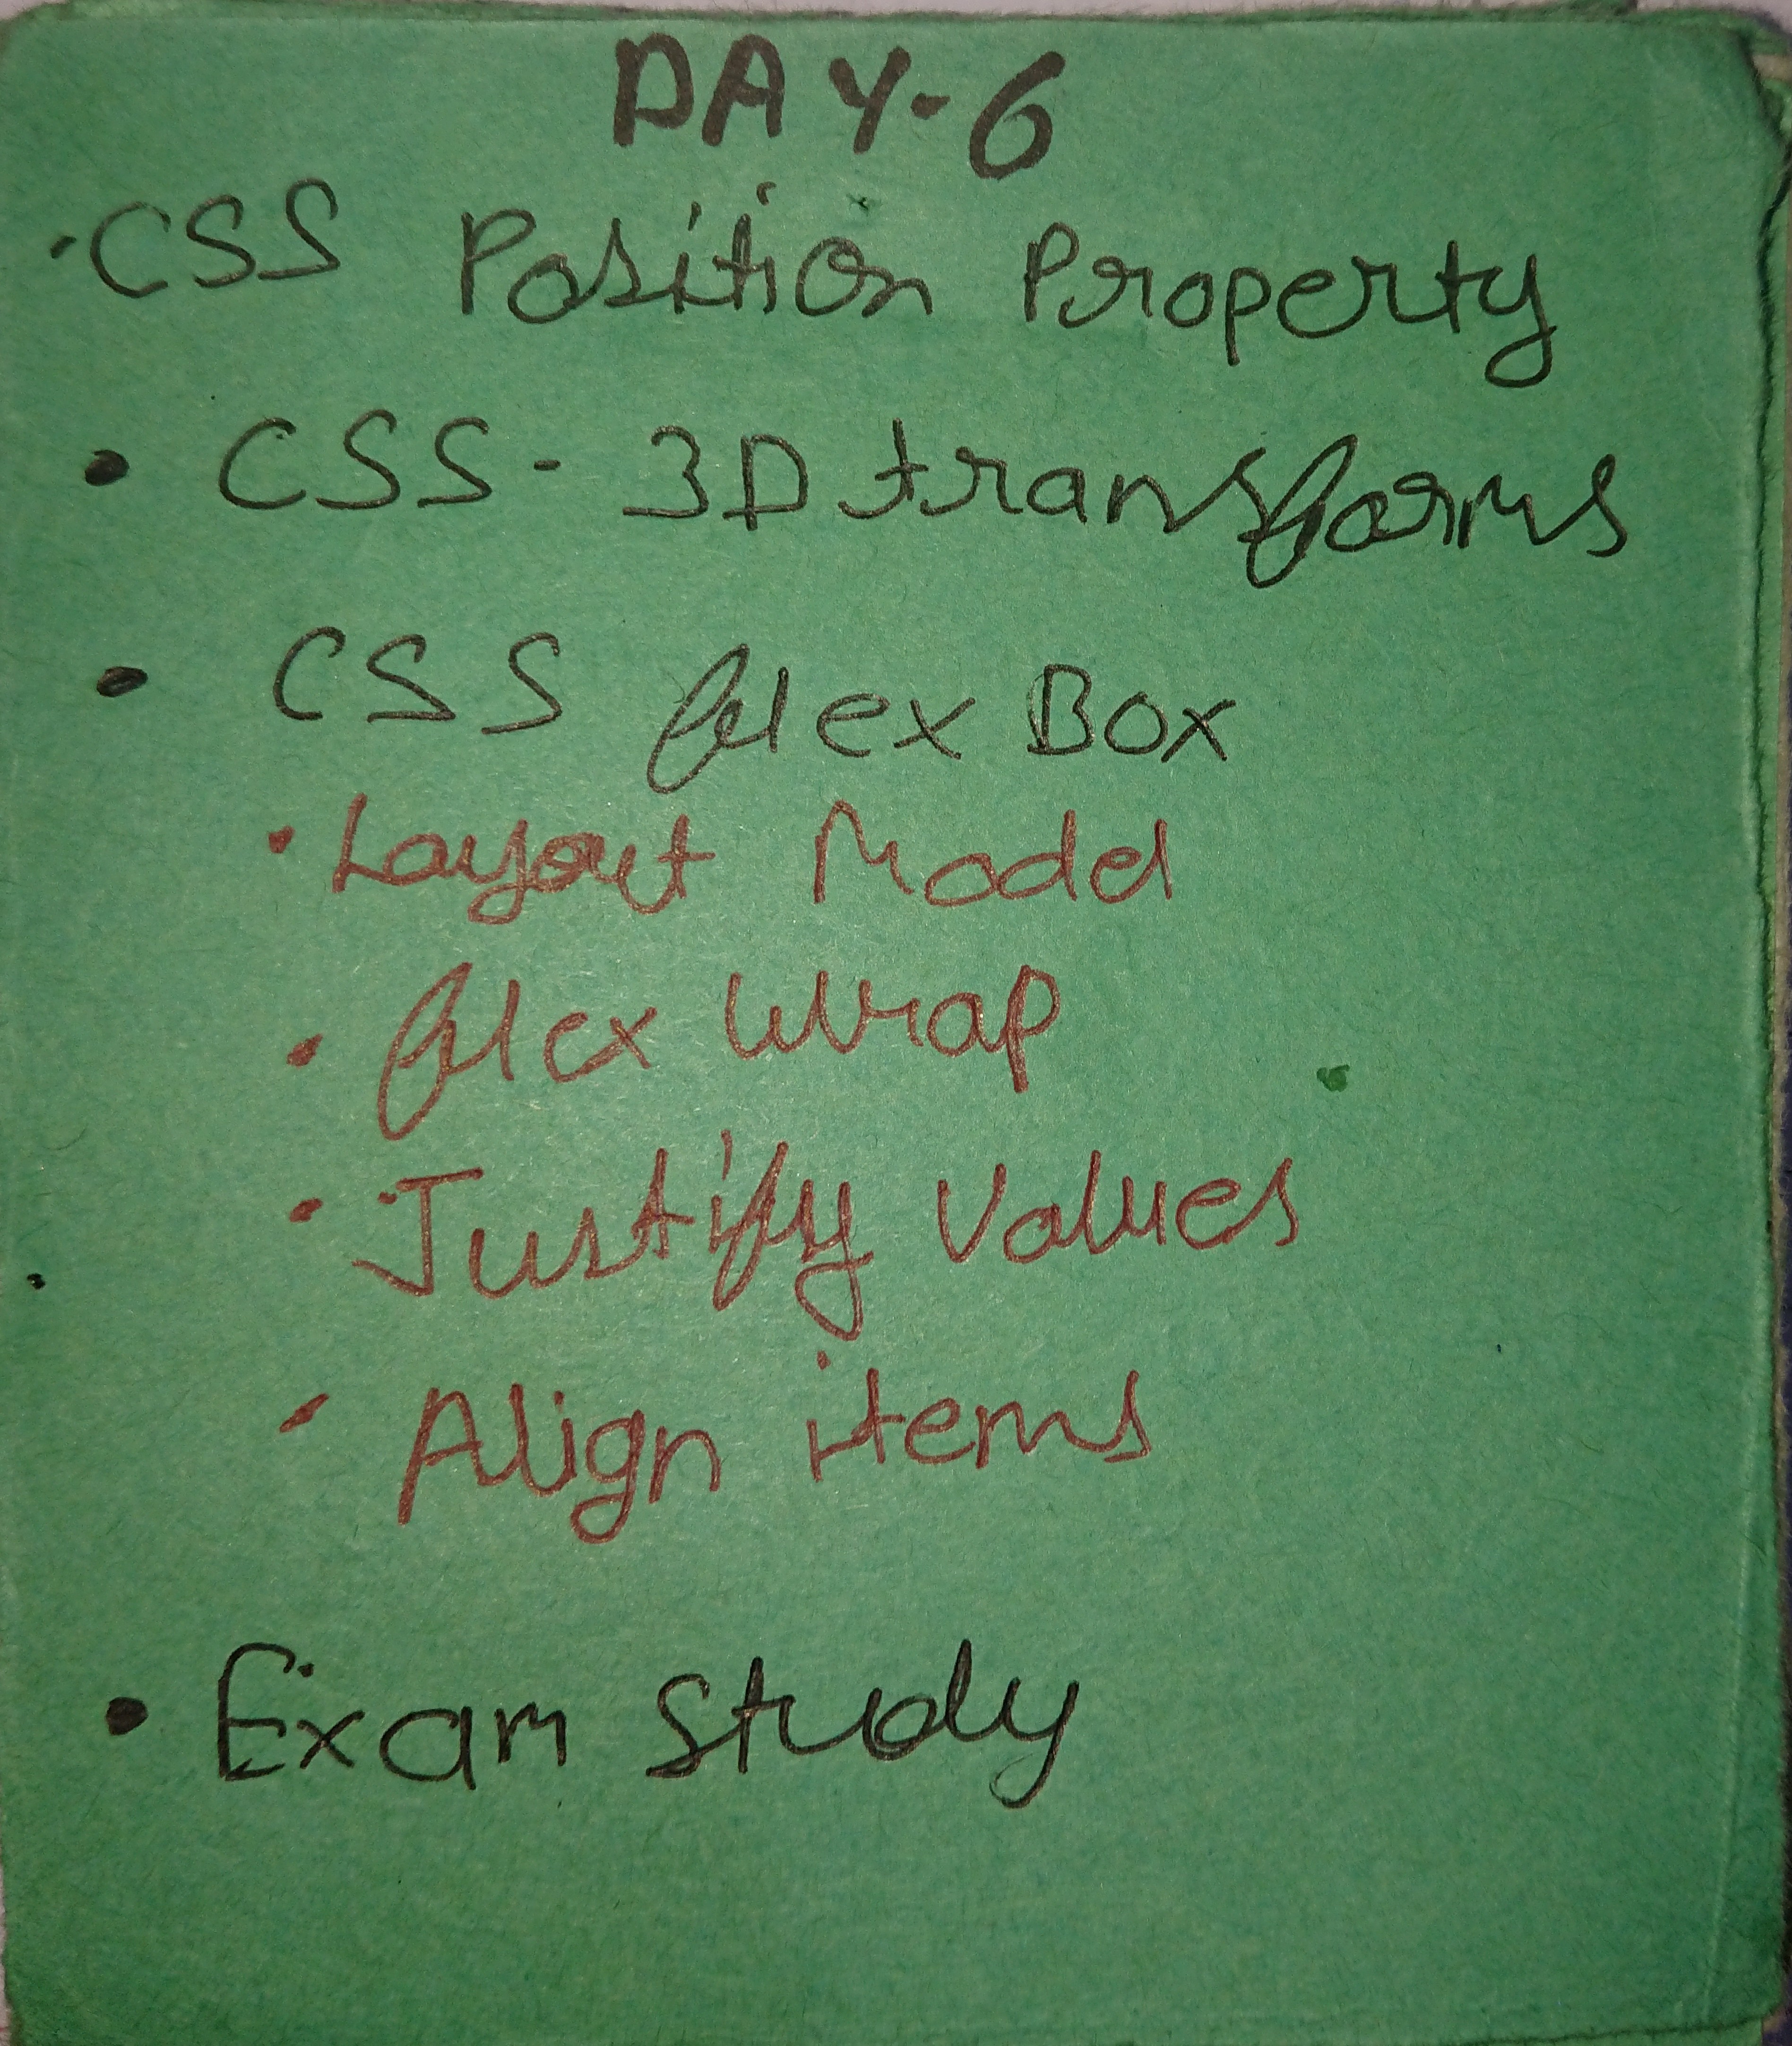 DAY-6
• CSS Position Property
• CSS - 3D transforms
• CSS flex Box
• Layout Model
• flex Wrap
• Justify Values
• Align items
• Exam Study